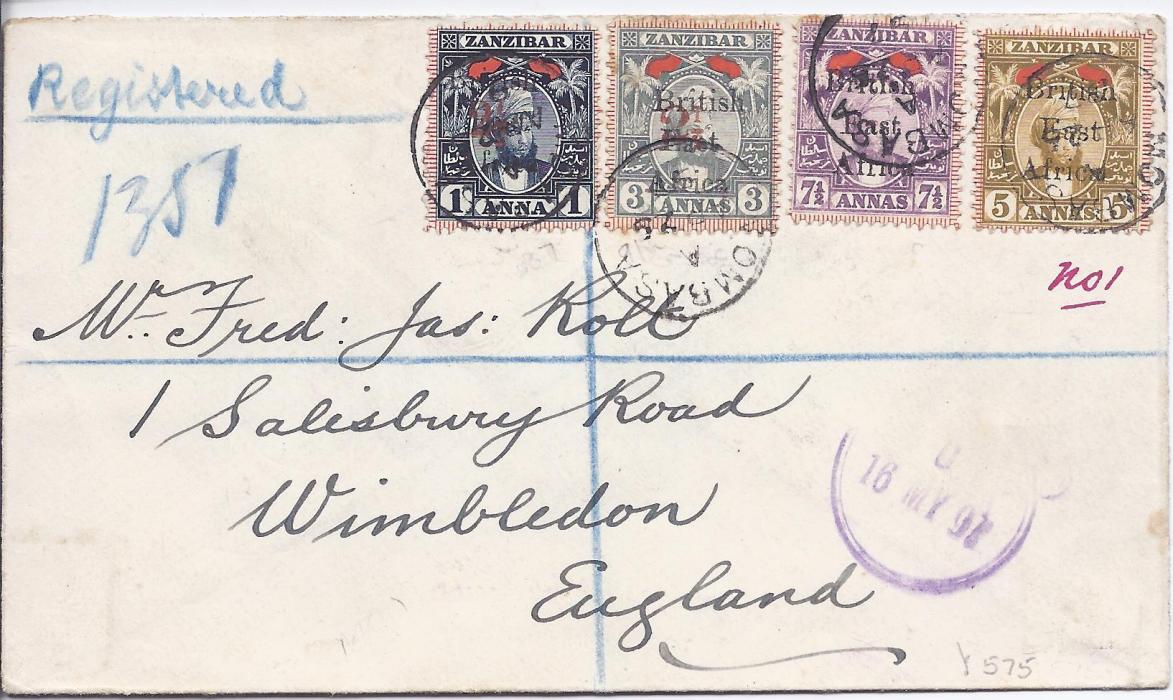 Registered
1351
ZANZIBAR
2½
1 ANNA 1
ZANZIBAR
British
East
Africa
2½
3 ANNAS 3
ZANZIBAR
British
East
Africa
7½ ANNAS 7½
ZANZIBAR
British
East
Africa
5 ANNAS 5
MOMBASA
No1
Mr. Fred: Jas: Kolt
1 Salisbury Road
Wimbledon
England
16 MY 97
575